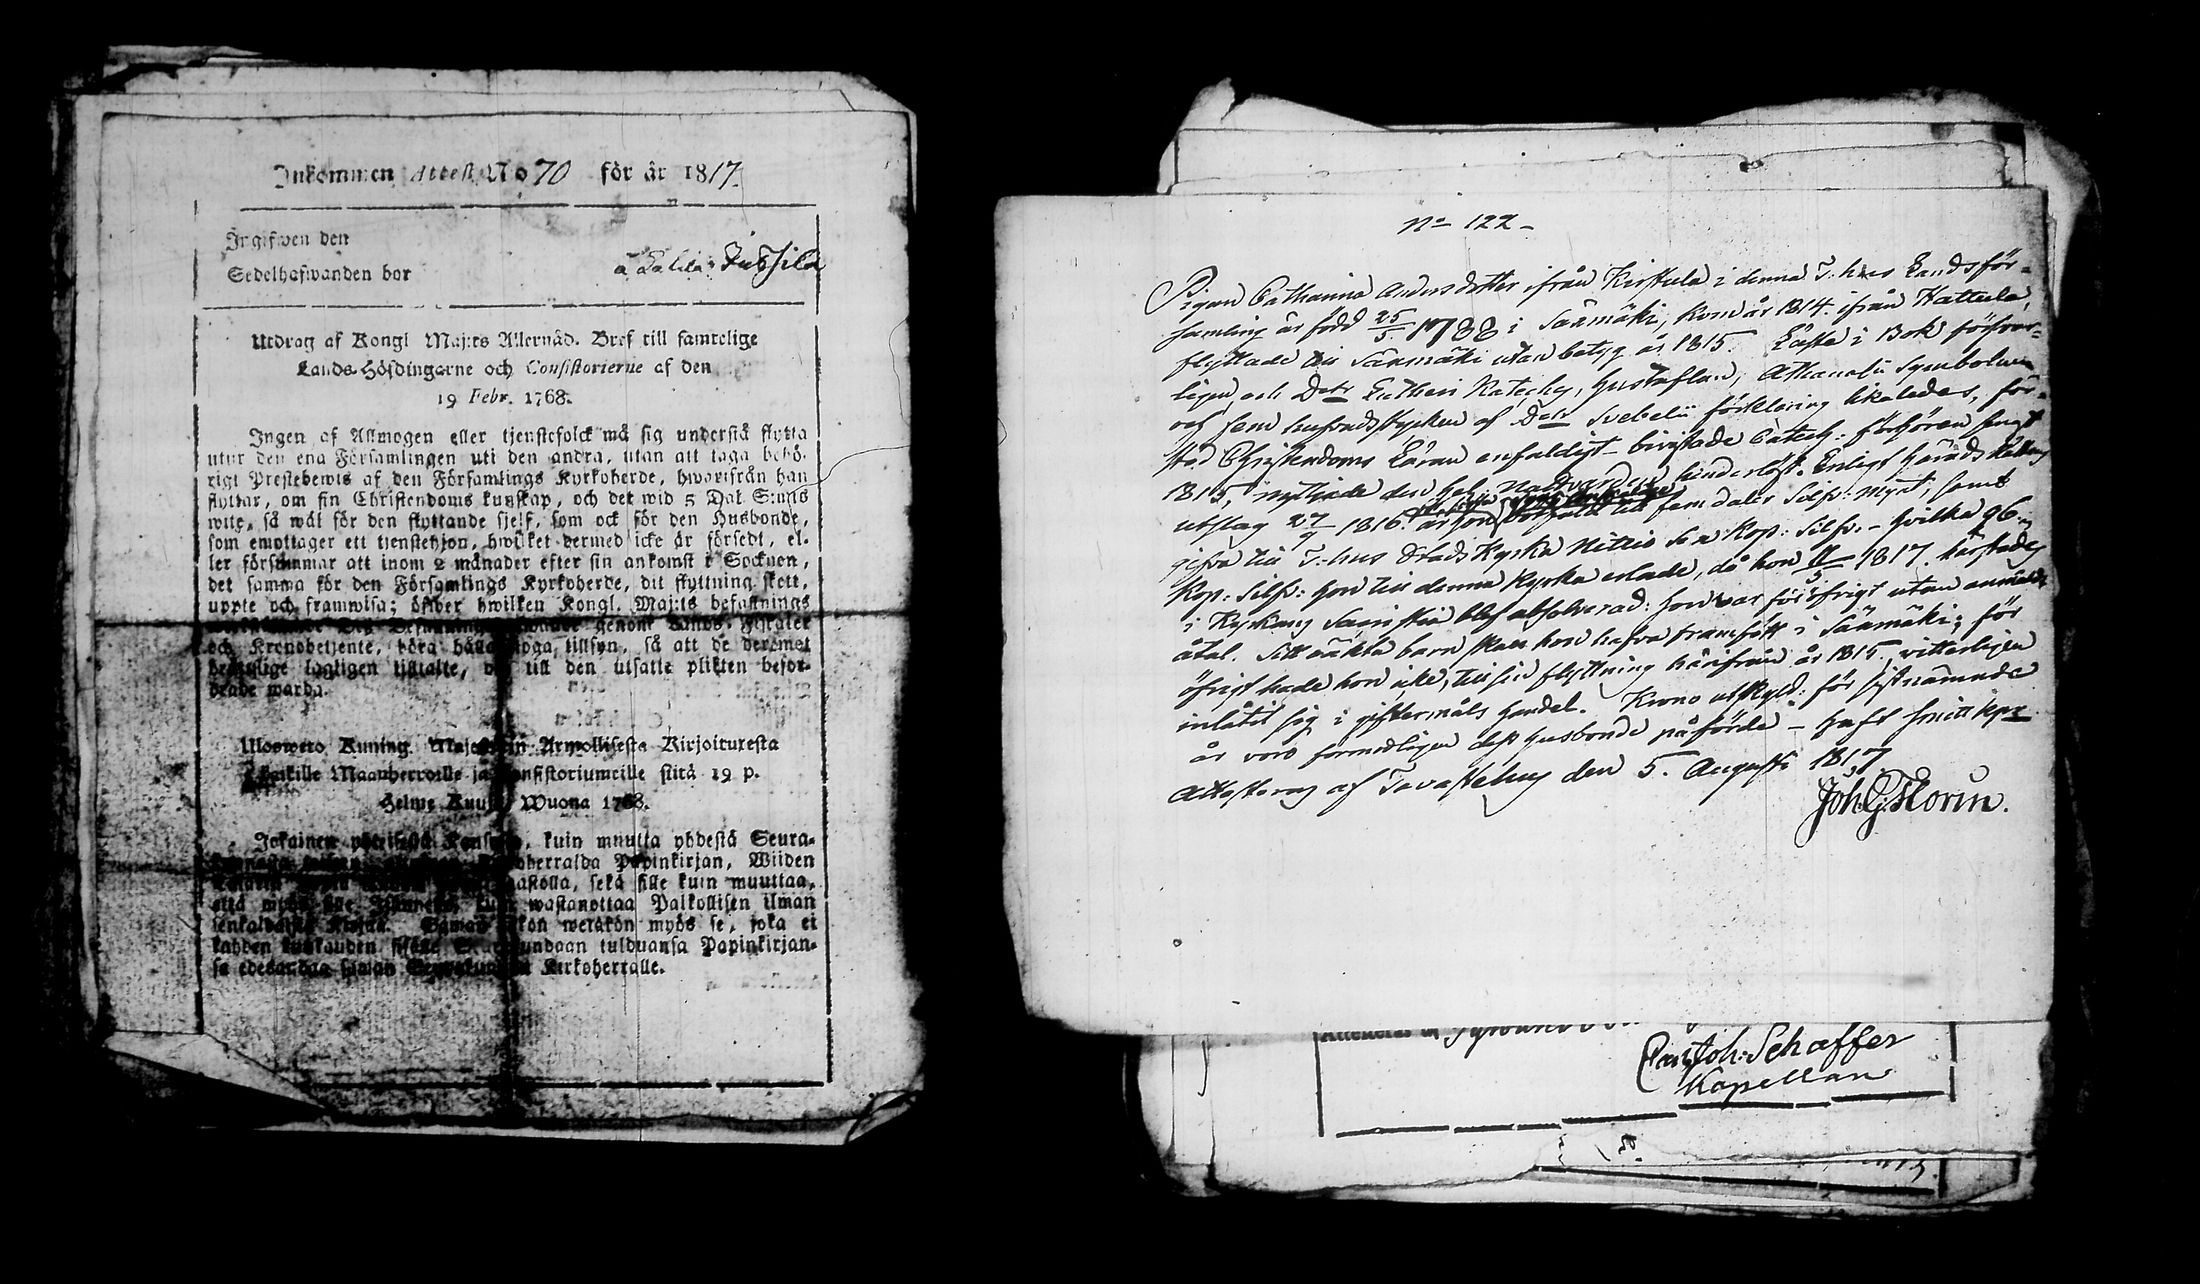 Inkommen Attest No 70 för år 1817.
Ingifwen den
Sedelhafwanden bor å
Utdrag af Kongl Maj:ts Allernåd. Bref till samtelige
Lands-Höfdingarne och Consistorierne af den
19 Febr. 1768.
Ingen af Allmogen eller tjenstefolck må sig understå flytta
utur den ena Församlingen uti den andra, utan att taga behö-
rigt Prestebewis af den Församlings Kyrkoherde, hwarifrån han
flyttar, om sin Christendoms kunskap, och det wid 5 Dal. S:mts
wite, så wäl för den flyttande sjelf, som ock för den Husbonde,
som emottager ett tjenstehjon, hwilket dermed icke är försedt, el-
ler försummar att inom 2 månader efter sin ankomst i Socknen,
det samma för den Församlings Kyrkoherde, dit flyttning skett,
uppte och framwisa; öfwer hwilken Kongl. Maj:ts befallnings
genom Lands-Fiskaler
och Kronobetjente, böra hålla noga tillsyn, så att de deremot
lagligen tilltalte, och till den utsatte plikten befor-
drade warda.
Ulosweto Kuning. Majestetin Armollisesta Kirjoituxesta
kaikille Maanherroille ja Consistoriumeille siitä 19 p.
Helme Kuusa Wuona 1768.
Jokainen yhteisestä Kansasta, kuin muutta yhdestä Seura-
Kirkoherralda Papinkirjan, Wiiden
sakastolla, sekä sille kuin muuttaa,
että myös sille kuin wastanottaa Palkollisen ilman
senkaldaista Kirjaa. Saman sakon wetäkön myös se, joka ei
kahden kuukauden sisälle Seurakundaan tulduansa Papinkirjan-
sa edesandaa saman Seurakunnan Kirkoherralle.
No 122 -
Pigan Catharina Andersdotter ifrån Kirstula i denna T:hus Landsför-
samling är född 25/5 1788 i Säämäki, kom år 1814 ifrån Hattula,
flyttade till Säämäki utan betyg år 1815. Läste i Bok förswar-
ligen och Dr Lutheri Kateches, Hustaflan, Athanasii Symbolum
och fem hufvudstycken af Dr Svebelii förklaring likaledes, för-
stod Christendoms Läran enfaldigt - bivistade Catech: förhören sengt
1815, nyttjade den Hel: Nattvarden hinderlöst. Enligt Häradsrättens
utslag 27/9 1816 är hon fem daler Silf: mynt, samt
gifva till T:hus Stads Kyrka Nittio sex Kop: Silf: - hvilka 96
Kop: Silf: hon till denna Kyrka erlade, då hon 11/5 1817
i Kyrkans Sacristia blef absolverad: hon var för öfrigt utan anmäldt
åtal. Sitt oäkta barn skall hon hafva framfödt i Säämäki; för
öfrigt hade hon icke, till sin flyttning härifrån år 1815, vitterligen
inlåtit sig i giftermåls handel. Krono utskyld: för sistnämnde
år voro förmodligen dess Husbonde påförde - haft smittkpr
Attesteras af Tavastehus den 5. Augusti 1817
Joh G: Florin.
Attesteras af
Carl Joh: Schaffer
Kapellan